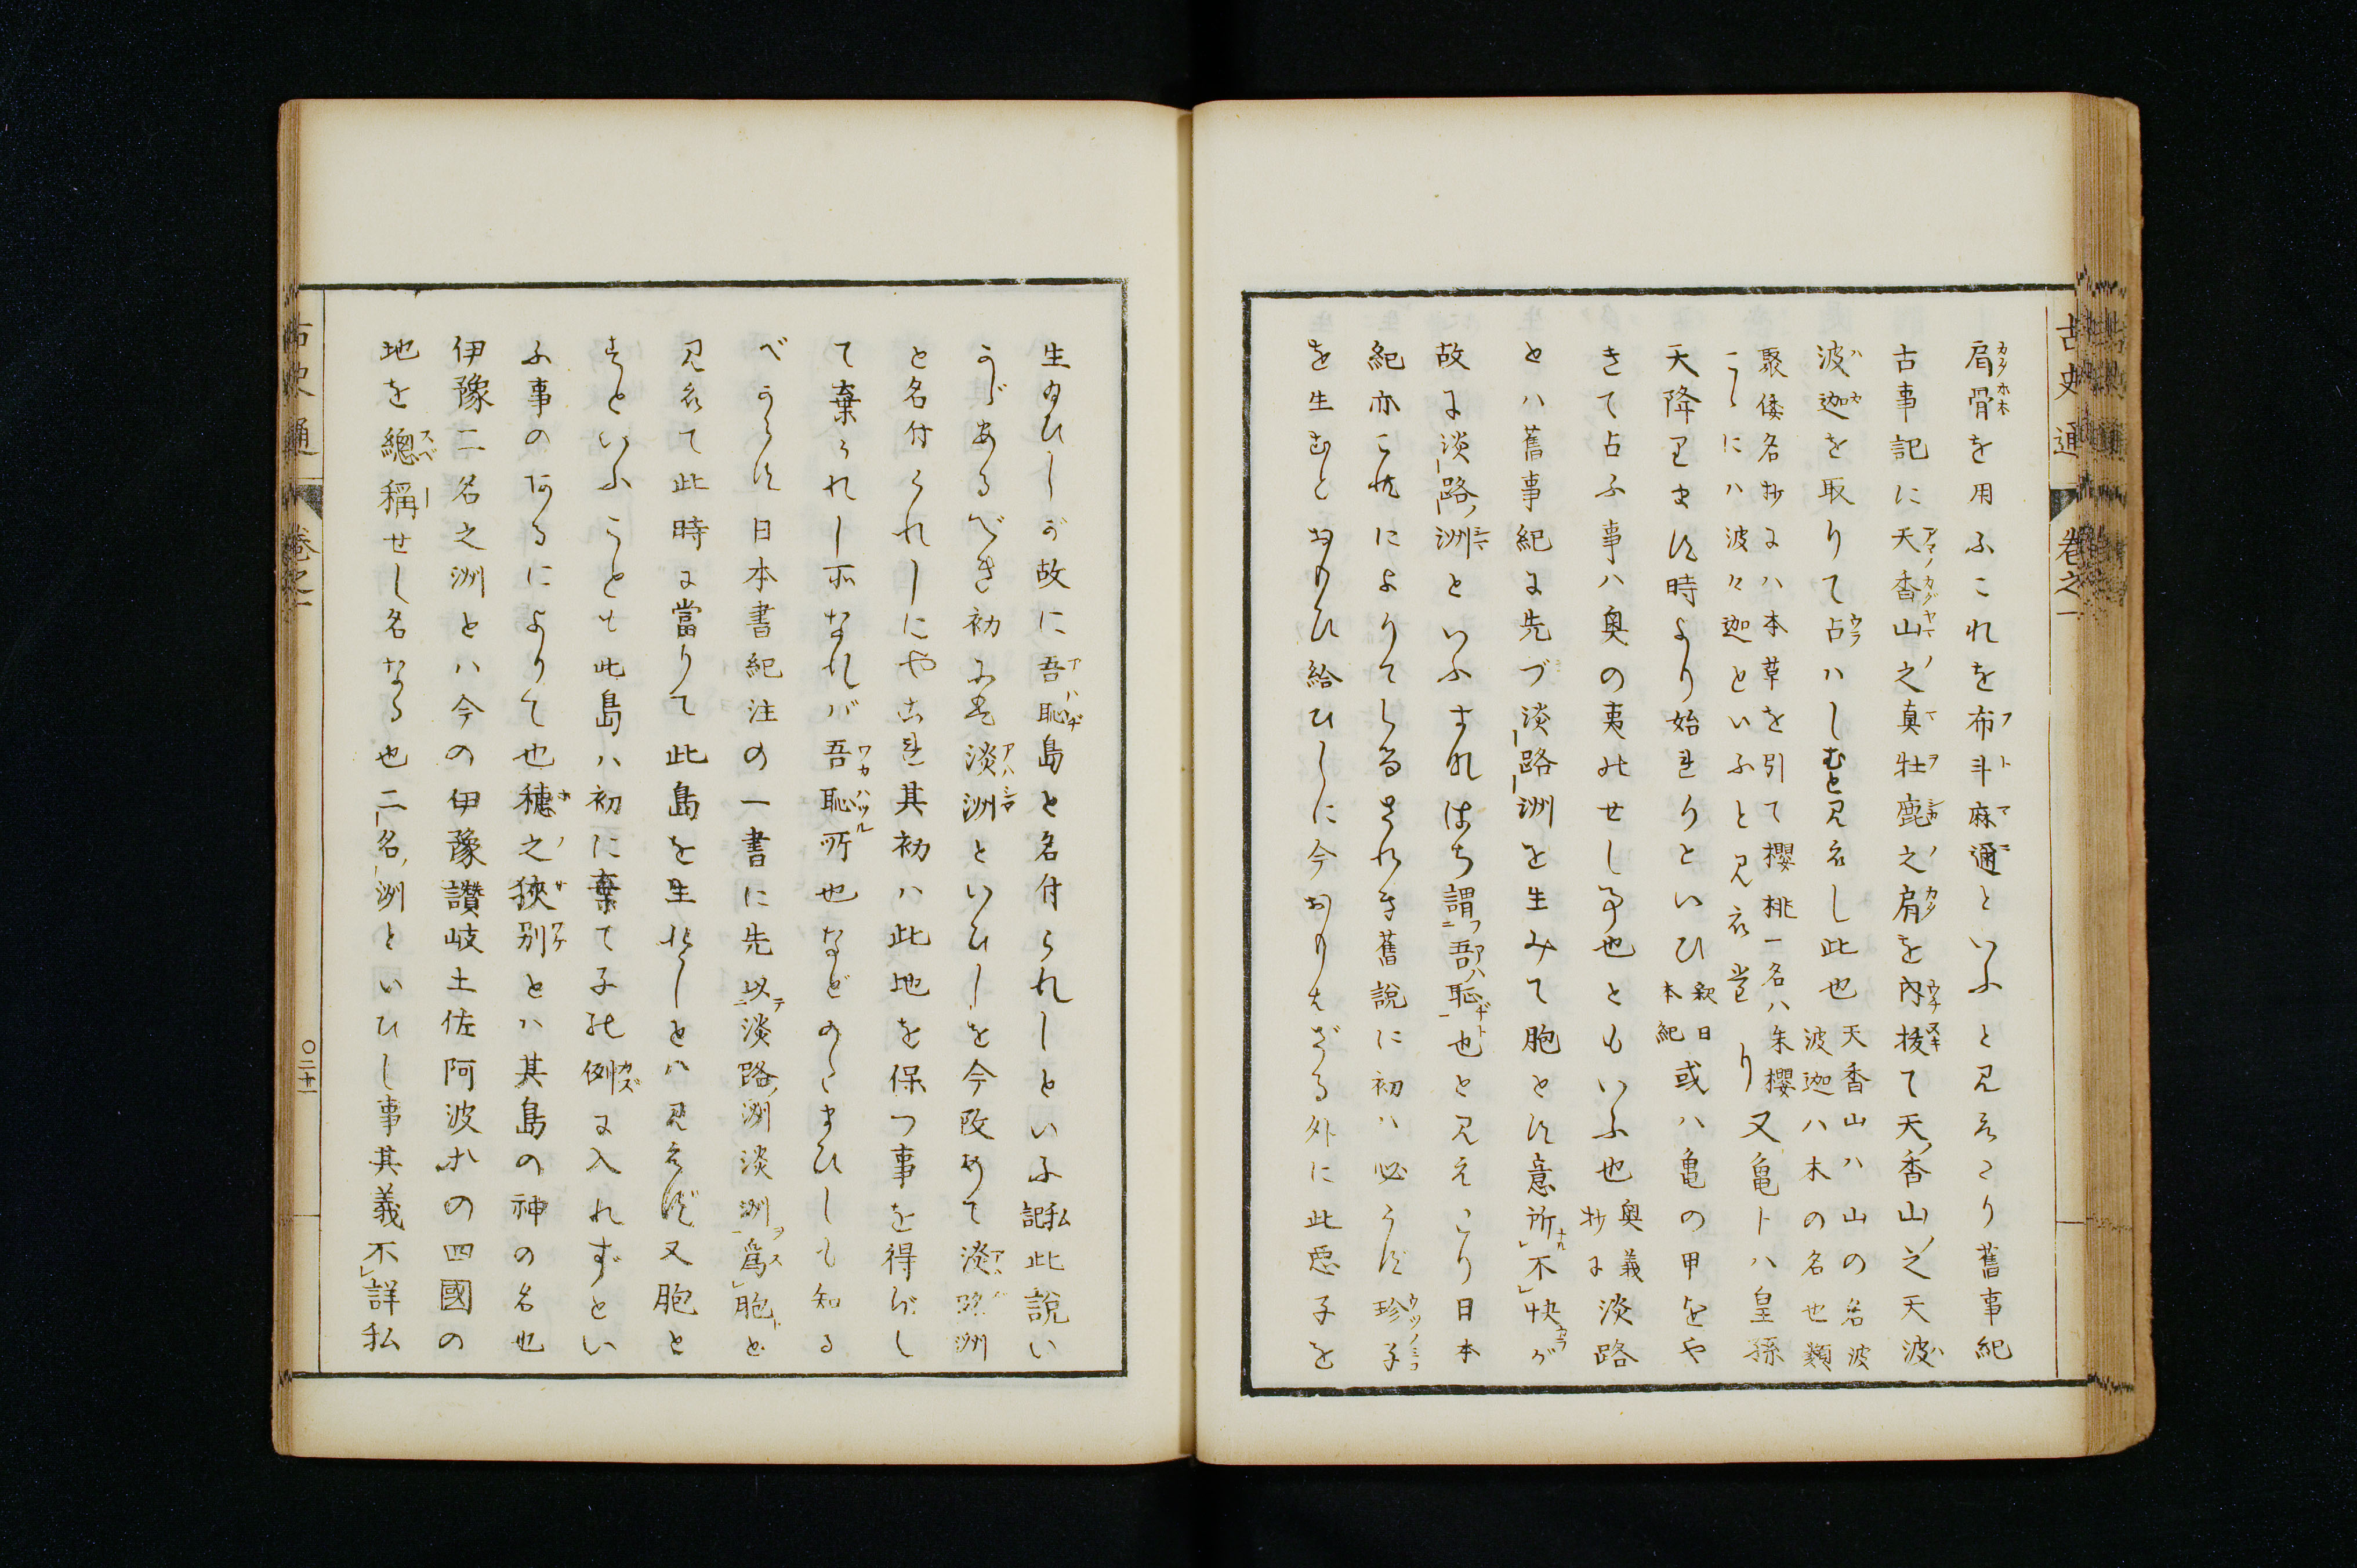 古史通 卷之一
肩骨を用ふこれを布斗麻通といふと見えたり舊事紀
古事記に天香山之真牡鹿之肩を内拔て天香山之天波
波迦を取りて占ハしむと見えし此也天香山ハ山の名波
波迦ハ木の名也類
聚倭名抄にハ本草を引て櫻桃一名ハ朱櫻
こゝにハ波々迦といふと見えたり又亀卜ハ皇孫
天降ります時より始れりといひ釈日
本紀或ハ亀の甲をや
きて占ふ事ハ奥の夷のせし事也ともいふ也奥義
抄に淡路
とハ舊事紀に先づ淡路洲を生みて胞とす意所不快が
故に淡路洲といふすなはち謂吾恥也と見えたり日本
紀亦これによりてしるされき舊說に初ハ必うず珍子
を生むとおもひ給ひしに今おもはざる外に此惡子を
生給ひしが故に吾恥島と名付られしといふ私
記此說い
うがあるべき初には淡洲といひしを今改めて淡路洲
と名付られしにや其初ハ此地を保つ事を得ずし
て棄られし所なれバ吾恥所也などのたまひしも知る
べからず日本書紀注の一書に先以淡路洲淡洲爲胞と
見えて此時に當りて此島を生れしとハ見えず又胞と
すといふことも此島ハ初に棄て子の例に入れずとい
ふ事のあるによりて也穂之狹別とハ其島の神の名也
伊豫二名之洲とハ今の伊豫讚岐土佐阿波等の四國の
地を總稱せし名なる也二名洲といひし事其義不詳私
古史通 卷之一
〇二十一